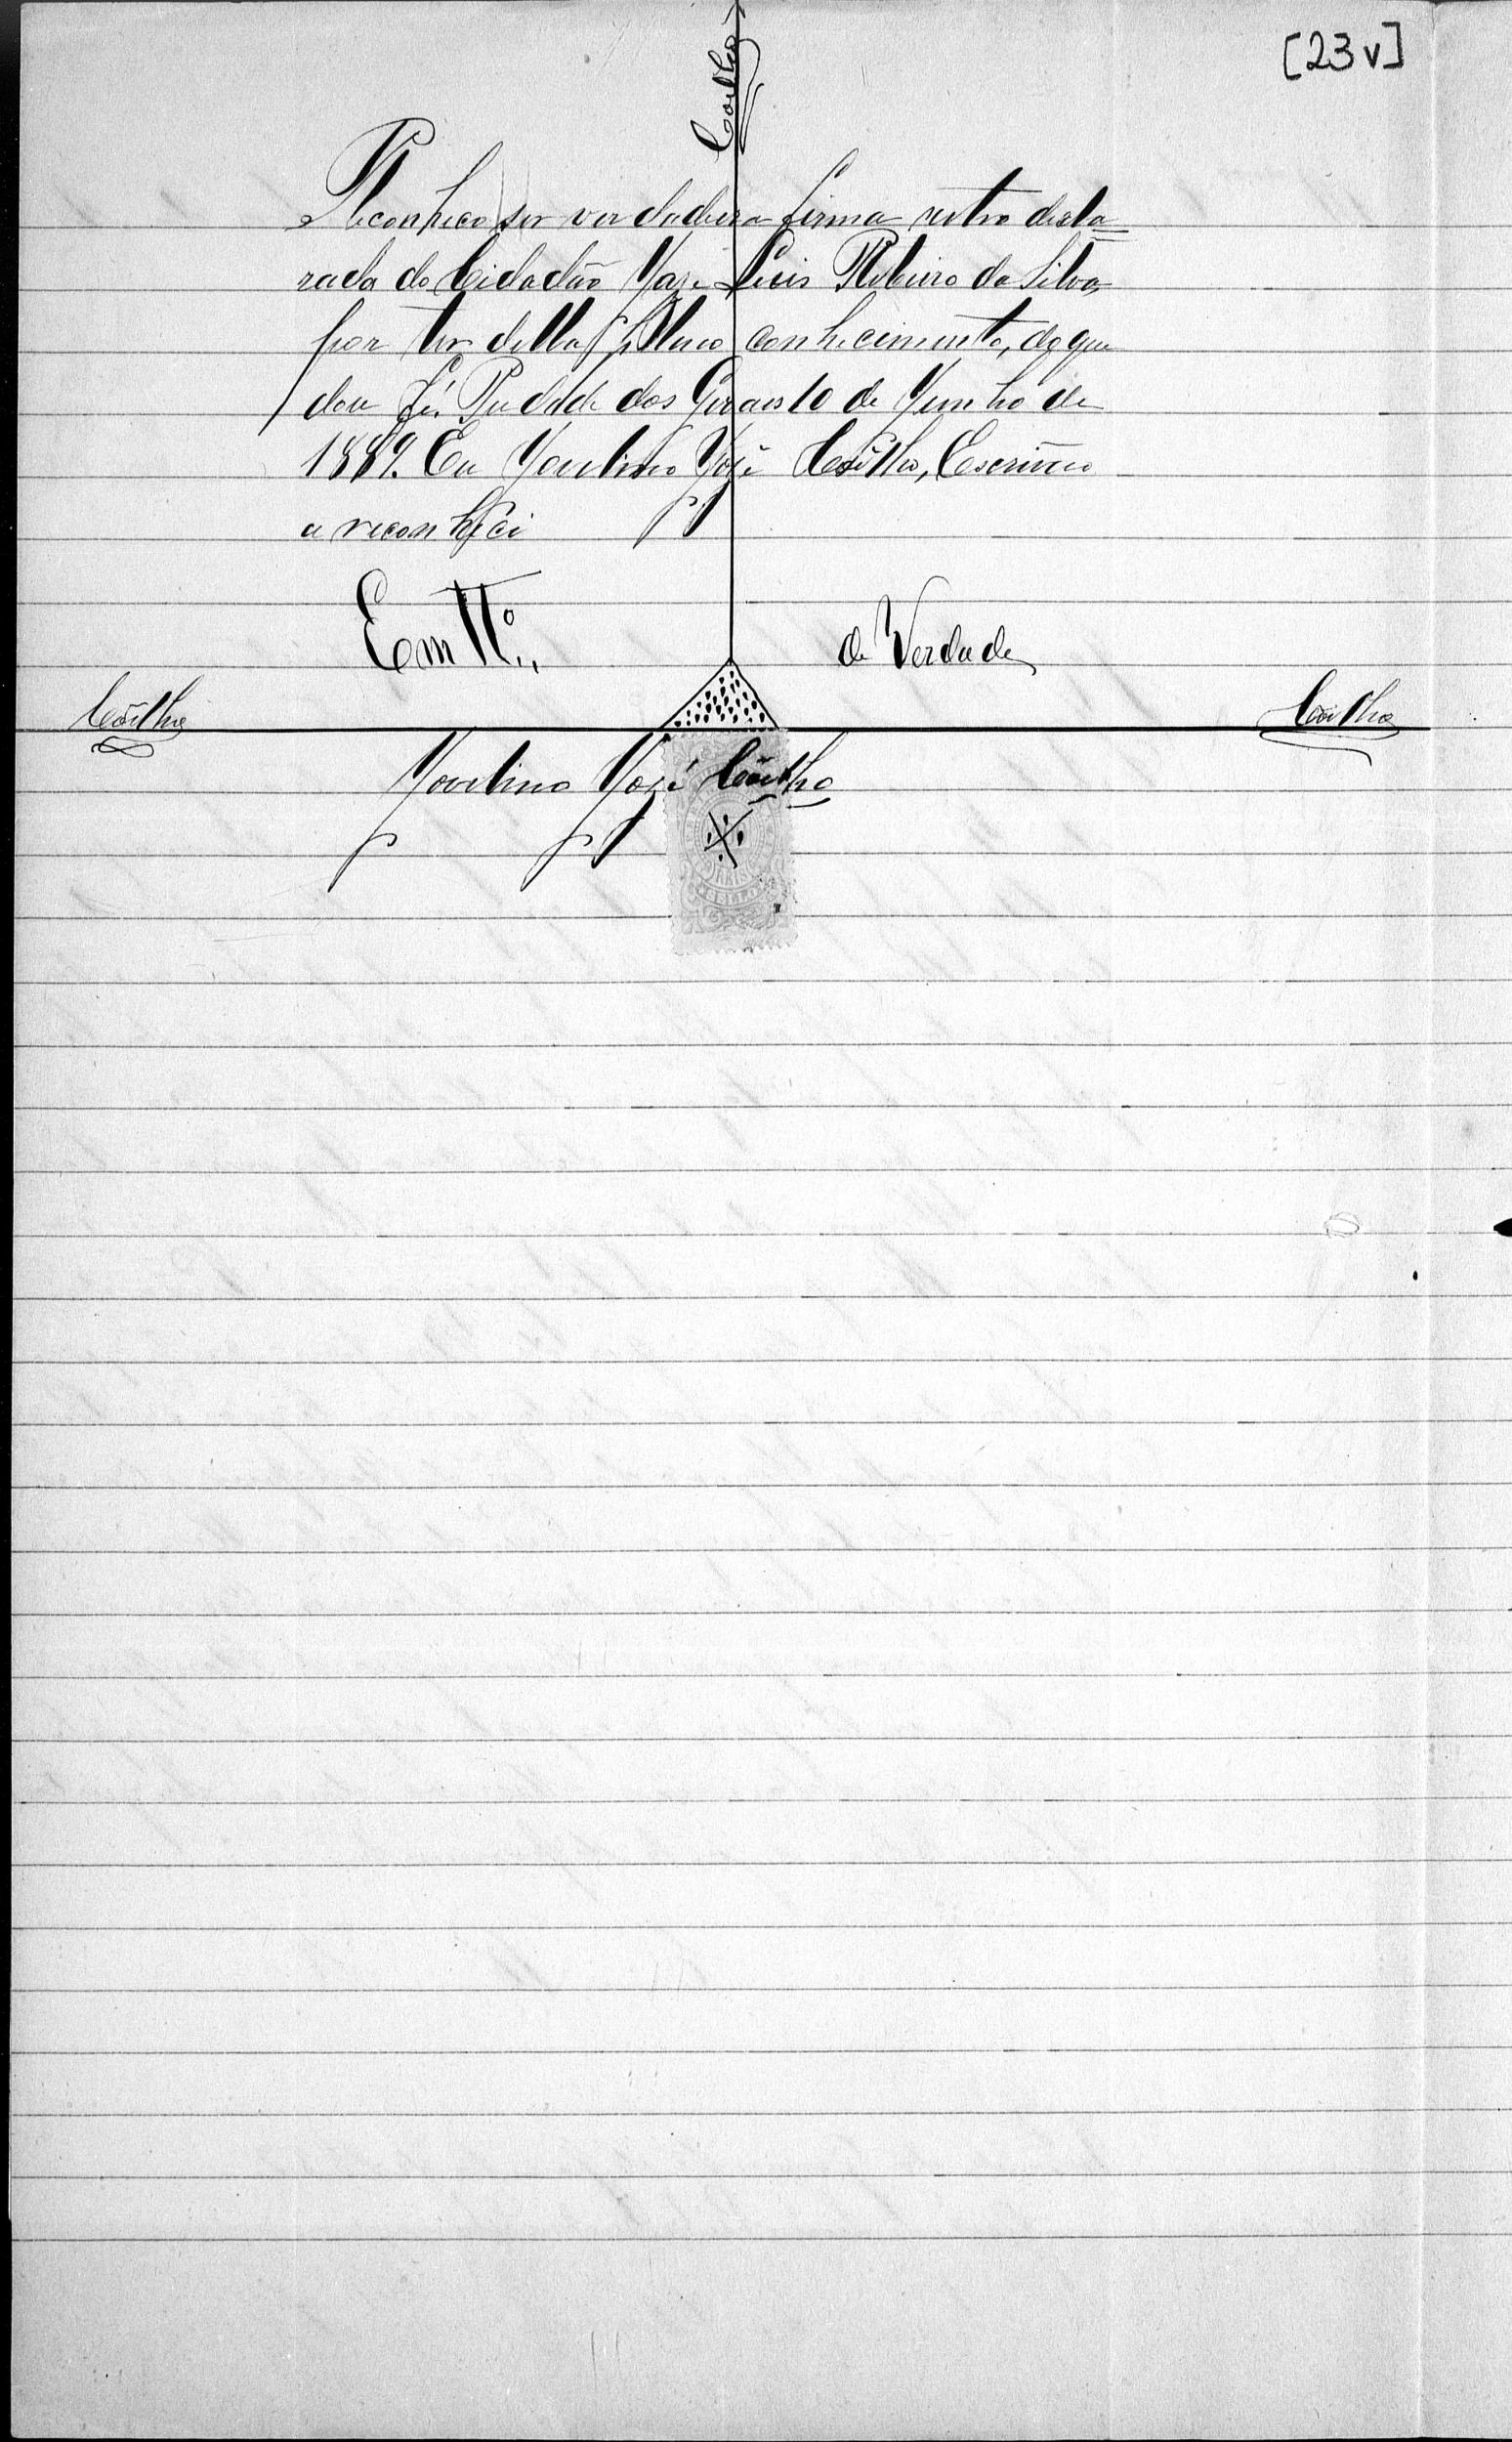 [23v]
Coêlho
Reconheço ser verdadeira firma retro decla
rada do Cidadão José Luis Ribeiro da Silva,
por ter della pleno conhecimento, do que
dou fé. Piedade dos Geraes 10 de Junho de
1889. Eu Jovelino José Coêlho, Escrivão
a reconheci
Em Tto. de Verdade
Coêlho Coêlho
Jovelino José Coêlho
REIS
SELLO